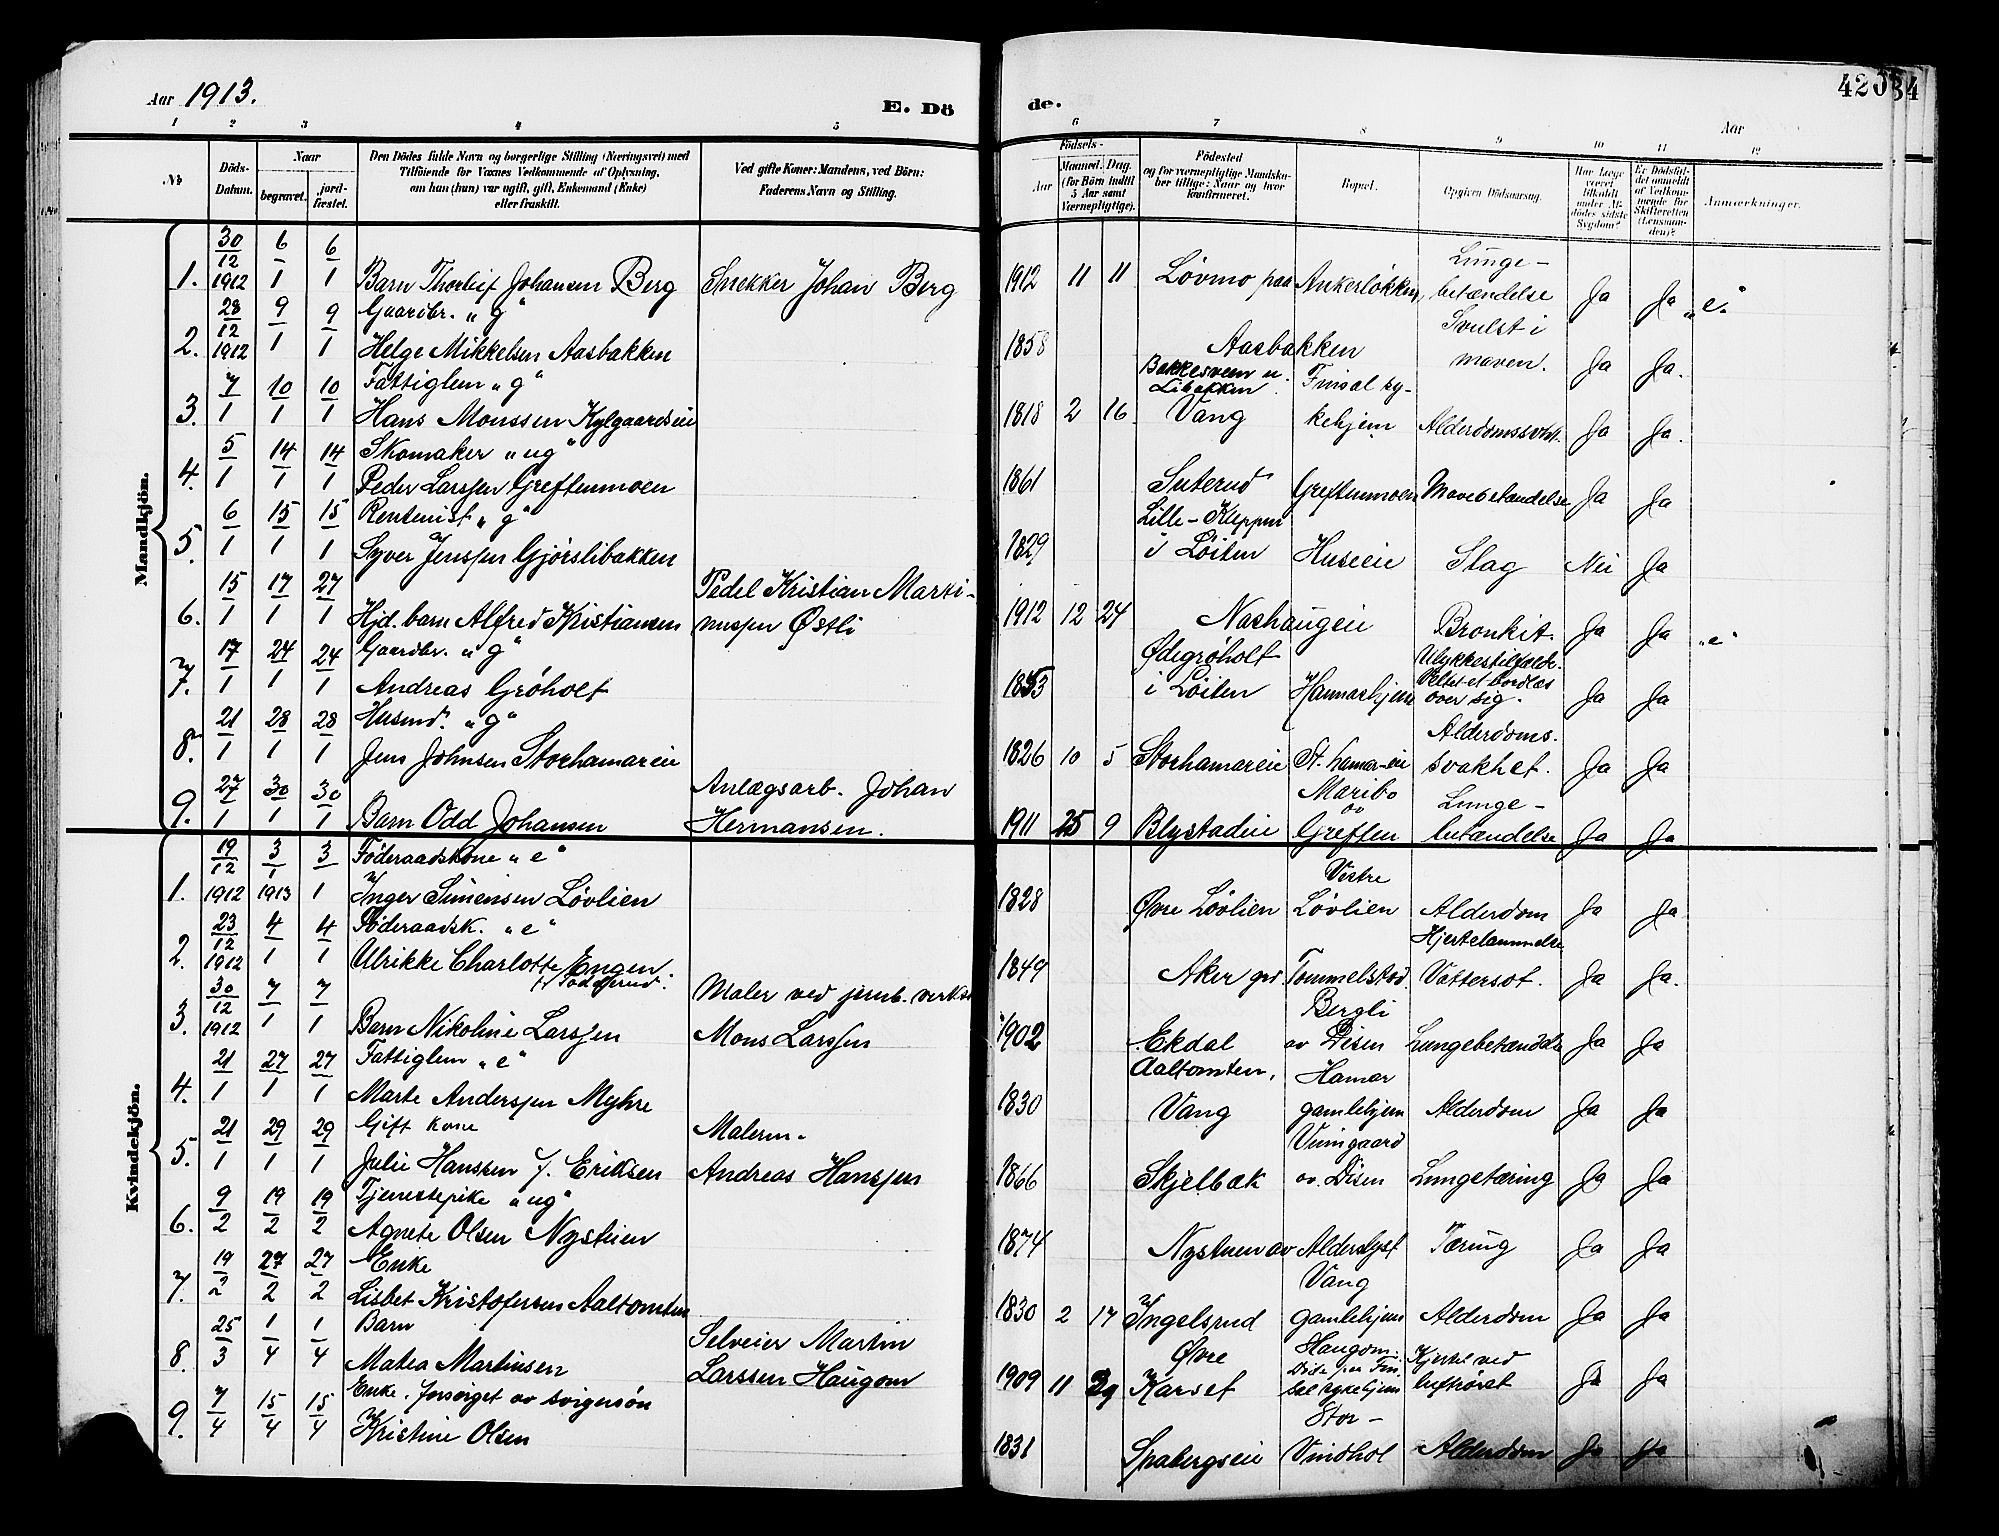 Aar 1913.
E. Dö
de.
420
34
Aar
1 2 3 4 5 6 7 8 9 10 11 12
№
Döds-Datum.
Naar
begravet.
jordfæstet.
Den Dödes fulde Navn og borgerlige Stilling (Næringsvei) med
Tilföiende for Voxnes Vedkommende af Oplysning,
om han (hun) var ugift, gift, Enkemand (Enke)
eller fraskilt.
Ved gifte Koner: Mandens, ved Börn:
Faderens Navn og Stilling.
Födsels-
Aar
Maaned. Dag.
(for Börn indtil
5 Aar samt
Værnepligtige).
Födested
og for værnepligtige Mandskaber tillige: Naar og hvor
konfirmeret.
Bopæl.
Opgiven Dödsaarsag.
Har Læge
været
tilkaldt
under Afdödes sidste
Sygdom?
Er Dödsfaldet anmeldt
af Vedkommende for
Skifteretten
(Lensmanden)?
Anmærkninger.
Mandkjön.
1. 30/12 1912 6/1 6/1 Barn Thorleif Johansen Berg Snekker Johan Berg 1912 11 11 Løvmo paa Ankerløkken, Lunge-
betændelse Ja Ja „e."
2. 28/12 1912 9/1 9/1 Gaardbr. „g"
Helge Mikkelsen Aasbakken 1858 Aasbakken Svulst i
maven. Ja Ja.
3. 7/1 10/1 10/1 Fattiglem „g"
Hans Monssen Kylgaardseie 1818 2 16 Bekkesveen u.
Libakken.
Vang Finsal sy-
kehjem Alderdomssvakh. Ja Ja.
4. 5/1 14/1 14/1 Skomaker „ug"
Peder Larssen Greftenmoen 1861 Suterud Greftenmoen Mavebetændelse Ja Ja
5. 6/1 15/1 15/1 Rentenist „g"
Syver Jenssen Gjørslibakken 1829 Lille-Kleppen
i Løiten Huseie Slag Nei Ja
6. 15/1 17/1 27/1 Hjd. barn Alfred Kristiansen Pedel Kristian Marti-
nussen Østli 1912 12 24 Nashaugeie Bronkit. Ja Ja „e"
7. 17/1 24/1 24/1 Gaardbr. „g"
Andreas Grøholt 1853 Ødegrøholt
i Løiten Hammarhjem Ulykkestilfælde.
Veltet et
over sig. Ja Ja
8. 21/1 28/1 28/1 Husmd. „g"
Jens Johnsen Storhamareie 1826 10 5 Storhamareie St. hamar-eie Alderdoms.
svakhet. Ja Ja
9. 27/1 30/1 30/1 Barn Odd Johansen Anlægsarb. Johan
Hermansen. 1911 25 9 Blystadeie Maribo
av
Greften Lunge-
betændelse Ja Ja
Kvindekjön.
1. 19/12 1912 3/1 1913 3/1 Føderaadskone „e"
Inger Simensen Løvlien 1828 Øvre Løvlien Vestre
Løvlien Alderdom Ja Ja
2. 23/12 1912 4/1 4/1 Føderaadsk. „e"
Ulrikke Charlotte Engen. 1849 Aker grd Tommelstad Hjertelammelse
Vattersot. Ja Ja.
3. 30/12 1912 7/1 7/1 Barn Nikoline Larssen Maler ved jernb. verkst
Mons Larssen 1902 Ekdal Bergli
av Disen Lungebetændelse Ja Ja
4. 21/1 27/1 27/1 Fattiglem „e"
Marte Anderssen Myhre 1830 Aaltomten,
Vang Hamar
gamlehjem Alderdom Ja Ja
5. 21/1 29/1 29/1 Gift kone
Julie Hanssen f. Eriksen Malerm.
Andreas Hanssen 1866 Skjelbæk Viumgaard
av. Disen Lungetæring Ja Ja
6. 9/2 19/2 19/2 Tjenestepike „ug"
Agnete Olsen Nystuen 1874 Nystuen av Alderslyst Tæring Ja Ja
7. 19/2 27/2 27/2 Enke
Lisbet Kristofersen Aaltomten 1830 2 17 Ingelsrud Vang
gamlehjem Alderdom Ja Ja
8. 25/3 1/4 1/4 Barn
Matea Martinsen Selveier Martin
Larssen Haugom 1909 11 29 Øvre
Karset Haugom.
Døde paa Fin-
sal sykehjem ved
luftrøret Ja Ja
9. 7/4 15/4 15/4 Enke. forsørget av svigersøn
Kristine Olsen 1831 Spabergseie Stor-
Vindhol Alderdom Ja Ja